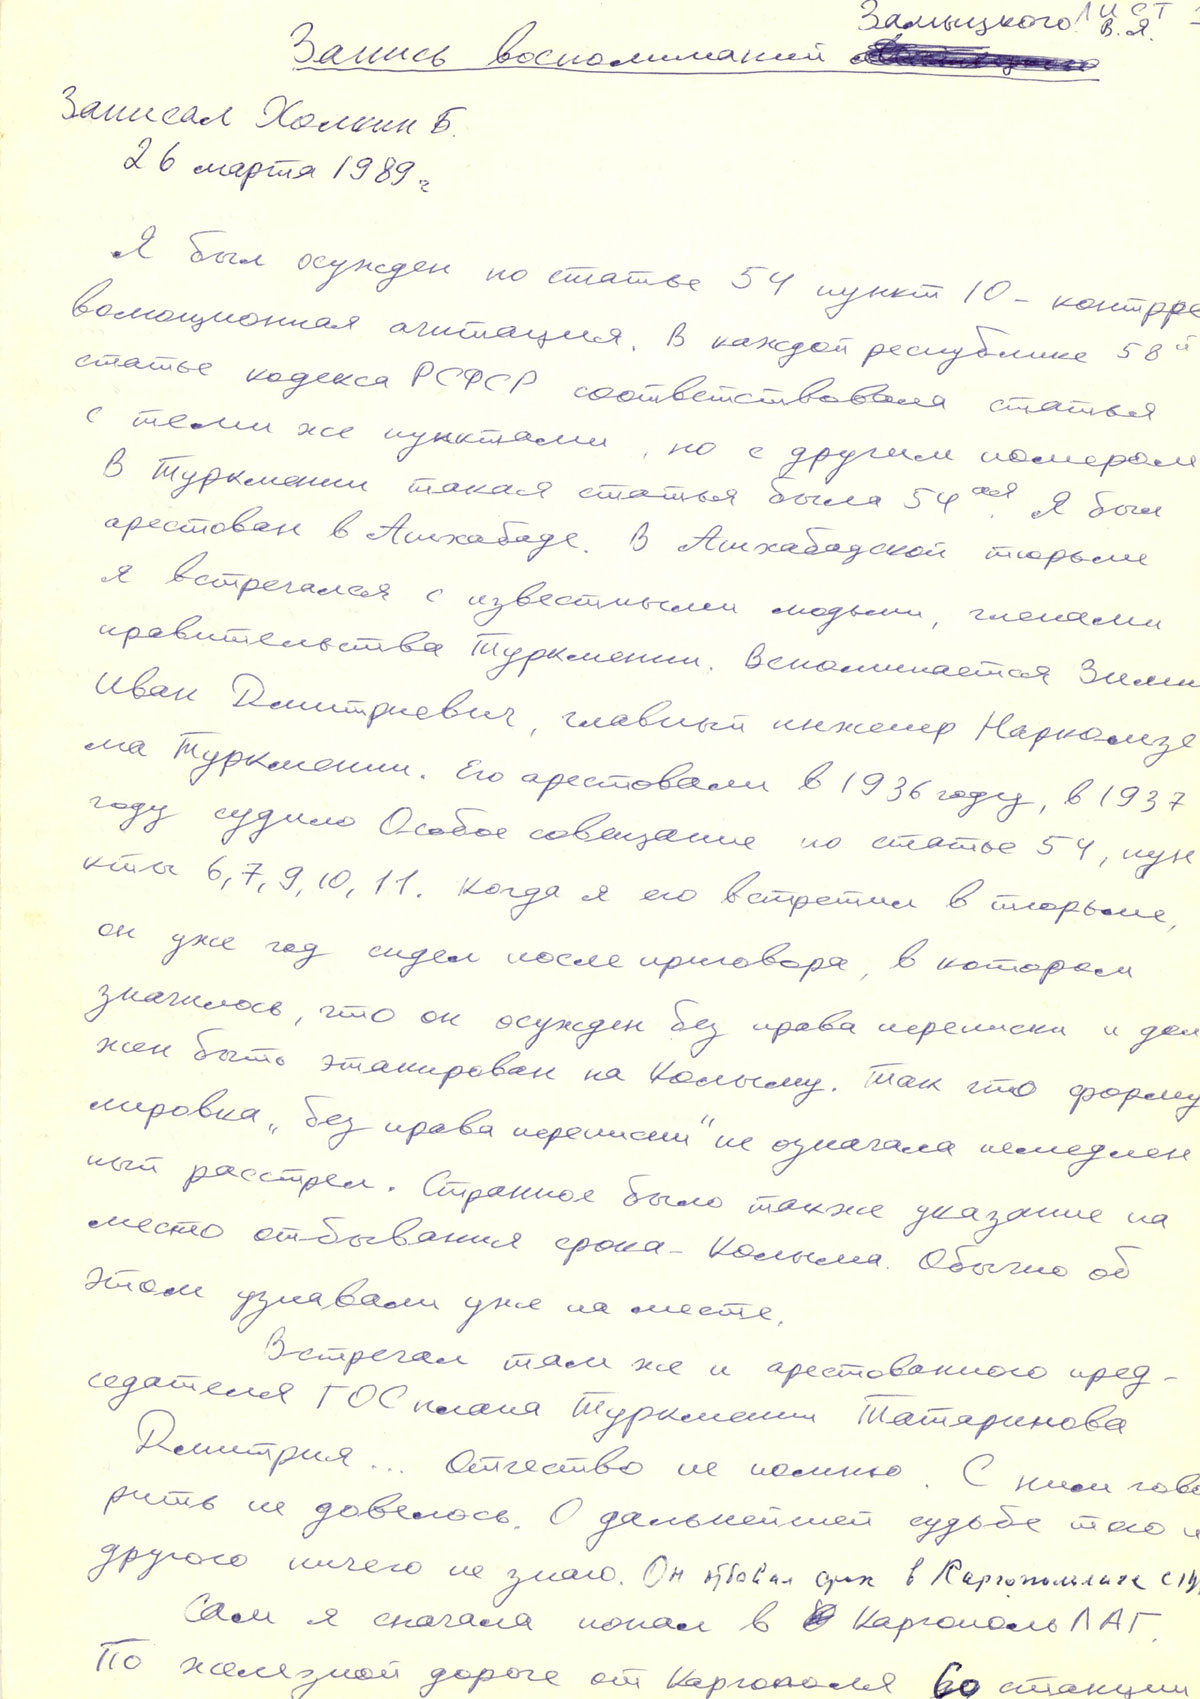 Лист
Замыцкого В.Я.
Запись воспоминаний
Записал Холкин Б.
26 марта 1989 г
Я был осужден по статье 54 пункт 10 – контрре
волюционная агитация. В каждой республике 58й
статье кодекса РСФСР соответствовала статья
с теми же пунктами, но с другим номером
В Туркмении такая статья была 54ая. Я был
арестован в Ашхабаде. В Ашхабадской тюрьме
я встречался с известными людьми, членами
правительства Туркмении. Вспоминается Зимин
Иван Дмитриевич, главный инженер Наркомзе
ма Туркмении. Его арестовали в 1936 году, в 1937
году судило Особое совещание по статье 54, пун
кты 6, 7, 9, 10, 11. Когда я его встретил в тюрьме,
он уже год сидел после приговора, в котором
значилось, что он осужден без права переписки и дол
жен быть этапирован на Колыму. Так что форму
лировка „без права переписки“ не означала немедлен
ный расстрел. Странное было также указание на
место отбывания срока – Колыма. Обычно об
этом узнавали уже на месте.
Встречал там же и арестованного пред-
седателя ГОСплана Туркмении Татаринова
Дмитрия... Отчество не помню. С ним гово
рить не довелось. О дальнейшей судьбе того и
другого ничего не знаю. Он отбывал срок в Каргопольлаге
Сам я сначала попал в КаргопольЛАГ.
По железной дороге от Каргополя до станции